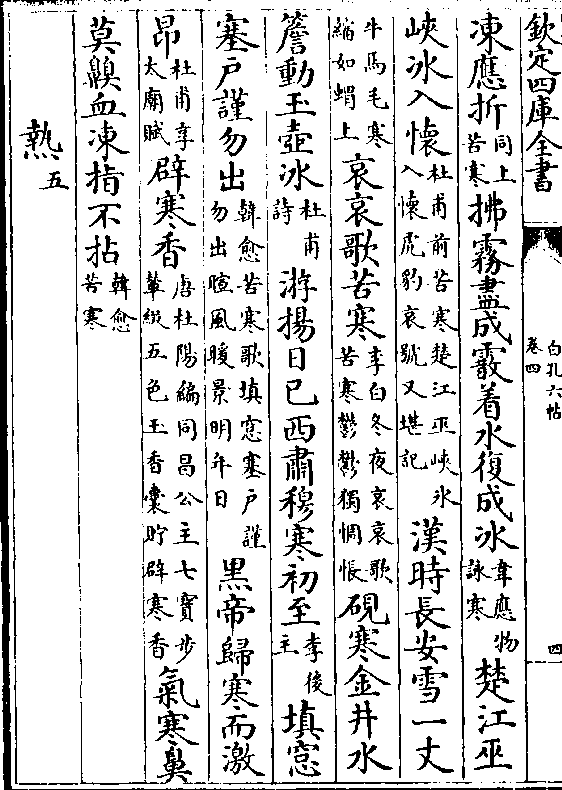 欽定四庫全書
白孔六帖
卷四
四
凍應折同上苦寒拂霧盡成霰着水復成冰韋應物詠寒楚江巫
峽冰入懷杜甫前苦寒楚江巫峽氷入懷虎豹哀號又堪記漢時長安雪一丈
牛馬毛寒縮如蝟上哀哀歌苦寒李白冬夜哀哀歌苦寒鬱鬱獨惆悵硯寒金井水
簷動玉壺冰杜甫詩游揚日已西肅穆寒初至李俊主填窓
塞户謹勿出韓愈苦寒歌填窓塞户謹勿出暄風暖景明年日黒帝歸寒而激
昂杜甫享太廟賦辟寒香唐杜陽編同昌公主七寳步輦綴五色玉香囊貯辟寒香氣寒鼻
莫齅血凍指不拈韓愈苦寒
熱五